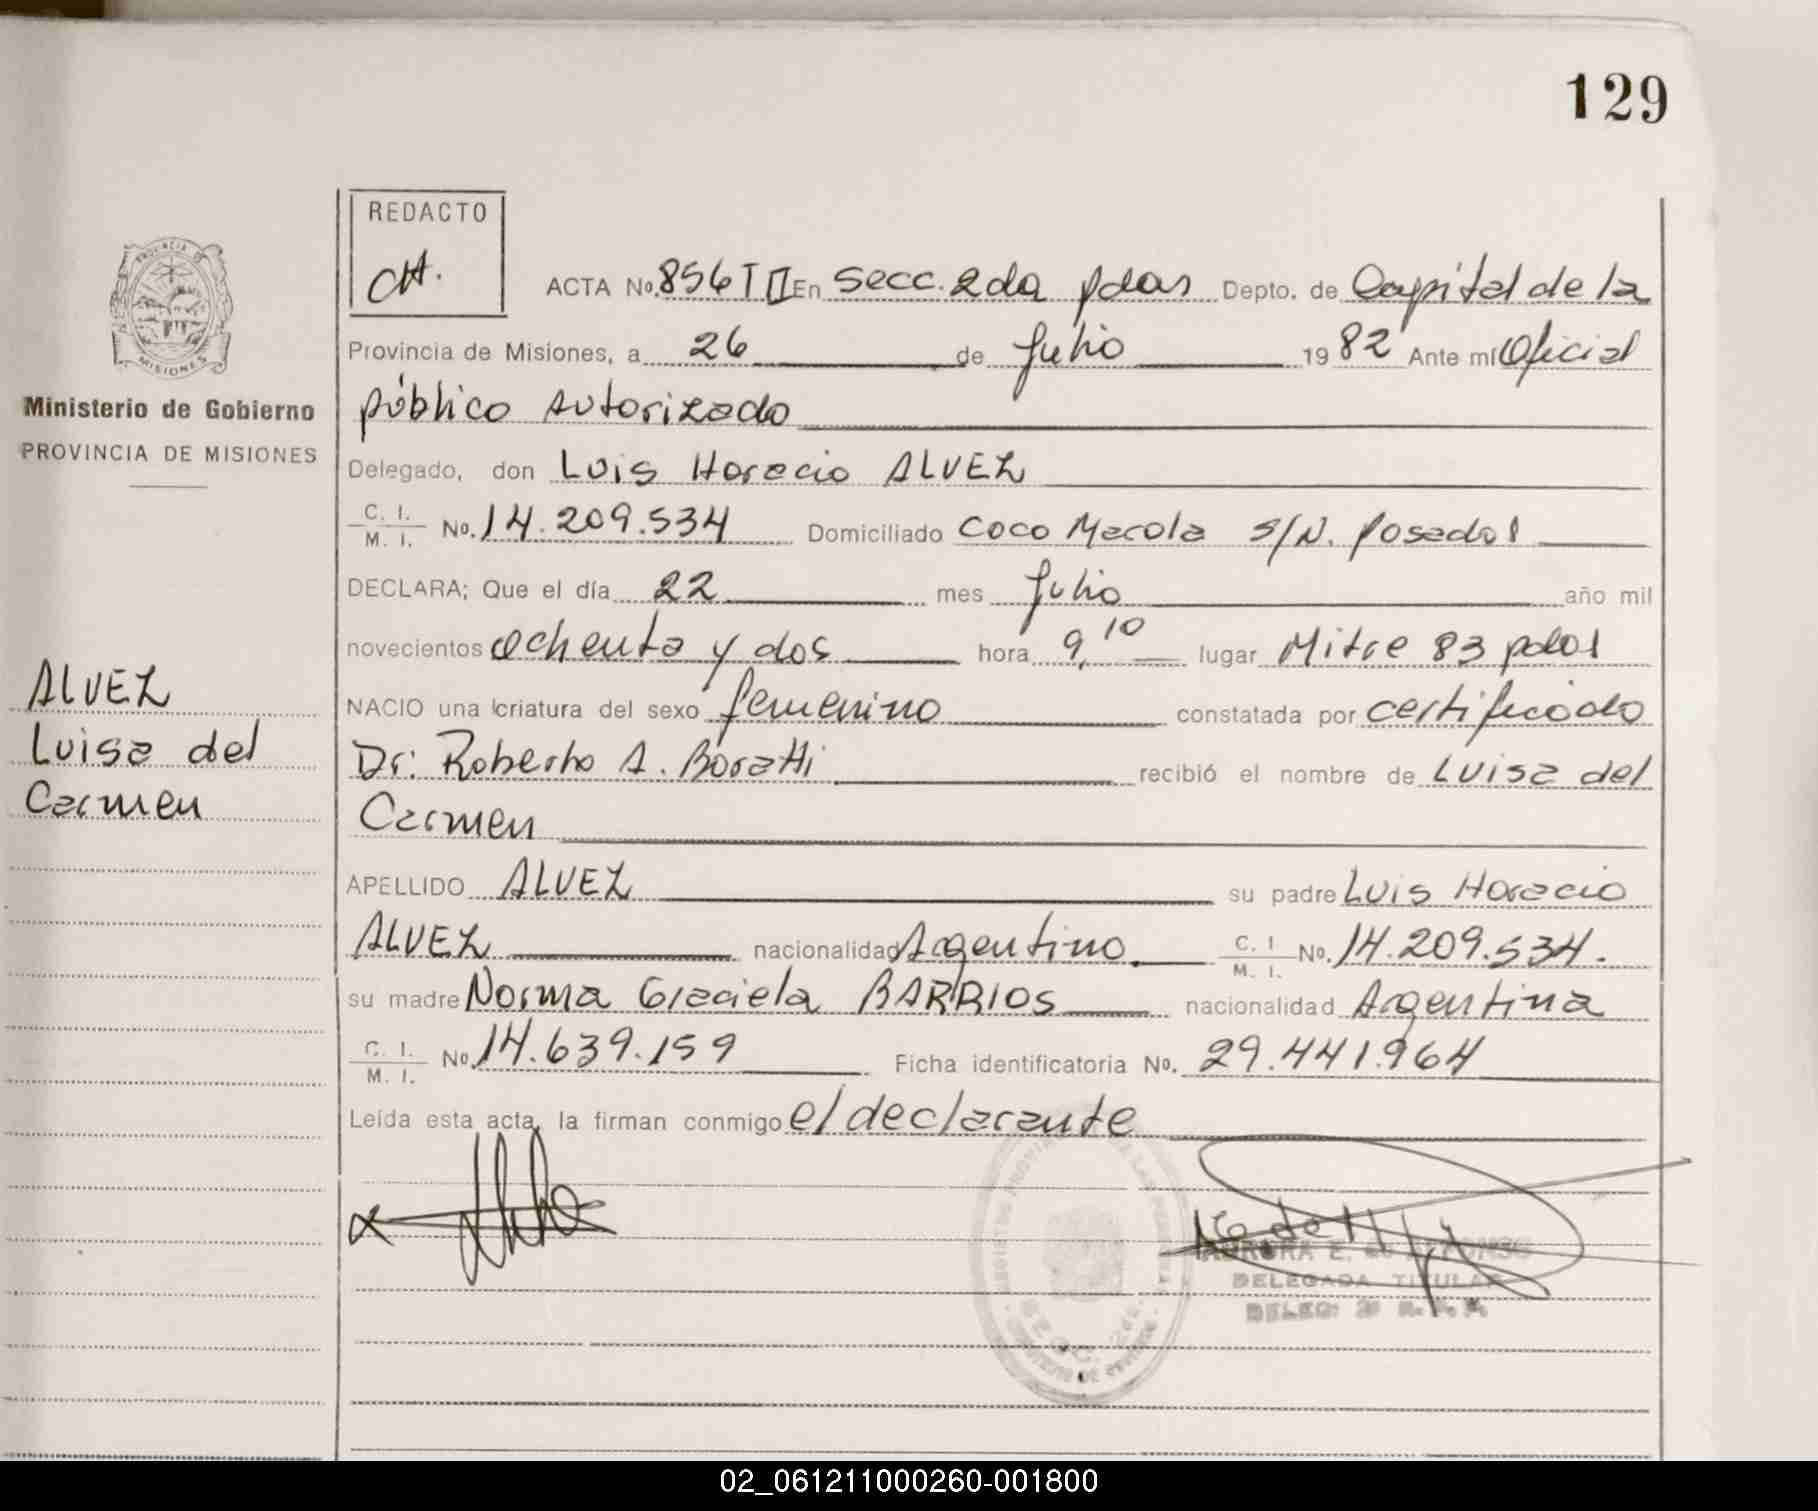 129
REDACTO
CH.
ACTA No. 856 T II En Secc. 2da pdas Depto. de Capital de la
Provincia de Misiones, a 26 de Julio 1982 Ante mí Oficial
público autorizado
Delegado, don Luis Horacio ALVEZ
C. I. M. I. No. 14.209.534 Domiciliado Coco Marola S/N. Posadas
DECLARA; Que el día 22 mes Julio año mil
novecientos ochenta y dos hora 9,10 lugar Mitre 83 pdas
NACIO una criatura del sexo femenino constatada por certificado
Dr: Roberto A. Boratti recibió el nombre de Luisa del
Carmen
APELLIDO ALVEZ su padre Luis Horacio
ALVEZ nacionalidad Argentino C. I M. I. No. 14.209.534.
su madre Norma Graciela BARRIOS nacionalidad Argentina
C. I. M. I. No 14.639.159 Ficha identificatoria No. 29.441.964
Leída esta acta, la firman conmigo el declarante
AURORA E. de
DELEGADA TITULAR
DELEG: 2
Ministerio de Gobierno
PROVINCIA DE MISIONES
ALVEZ
Luisa del
Carmen
02_061211000260-001800